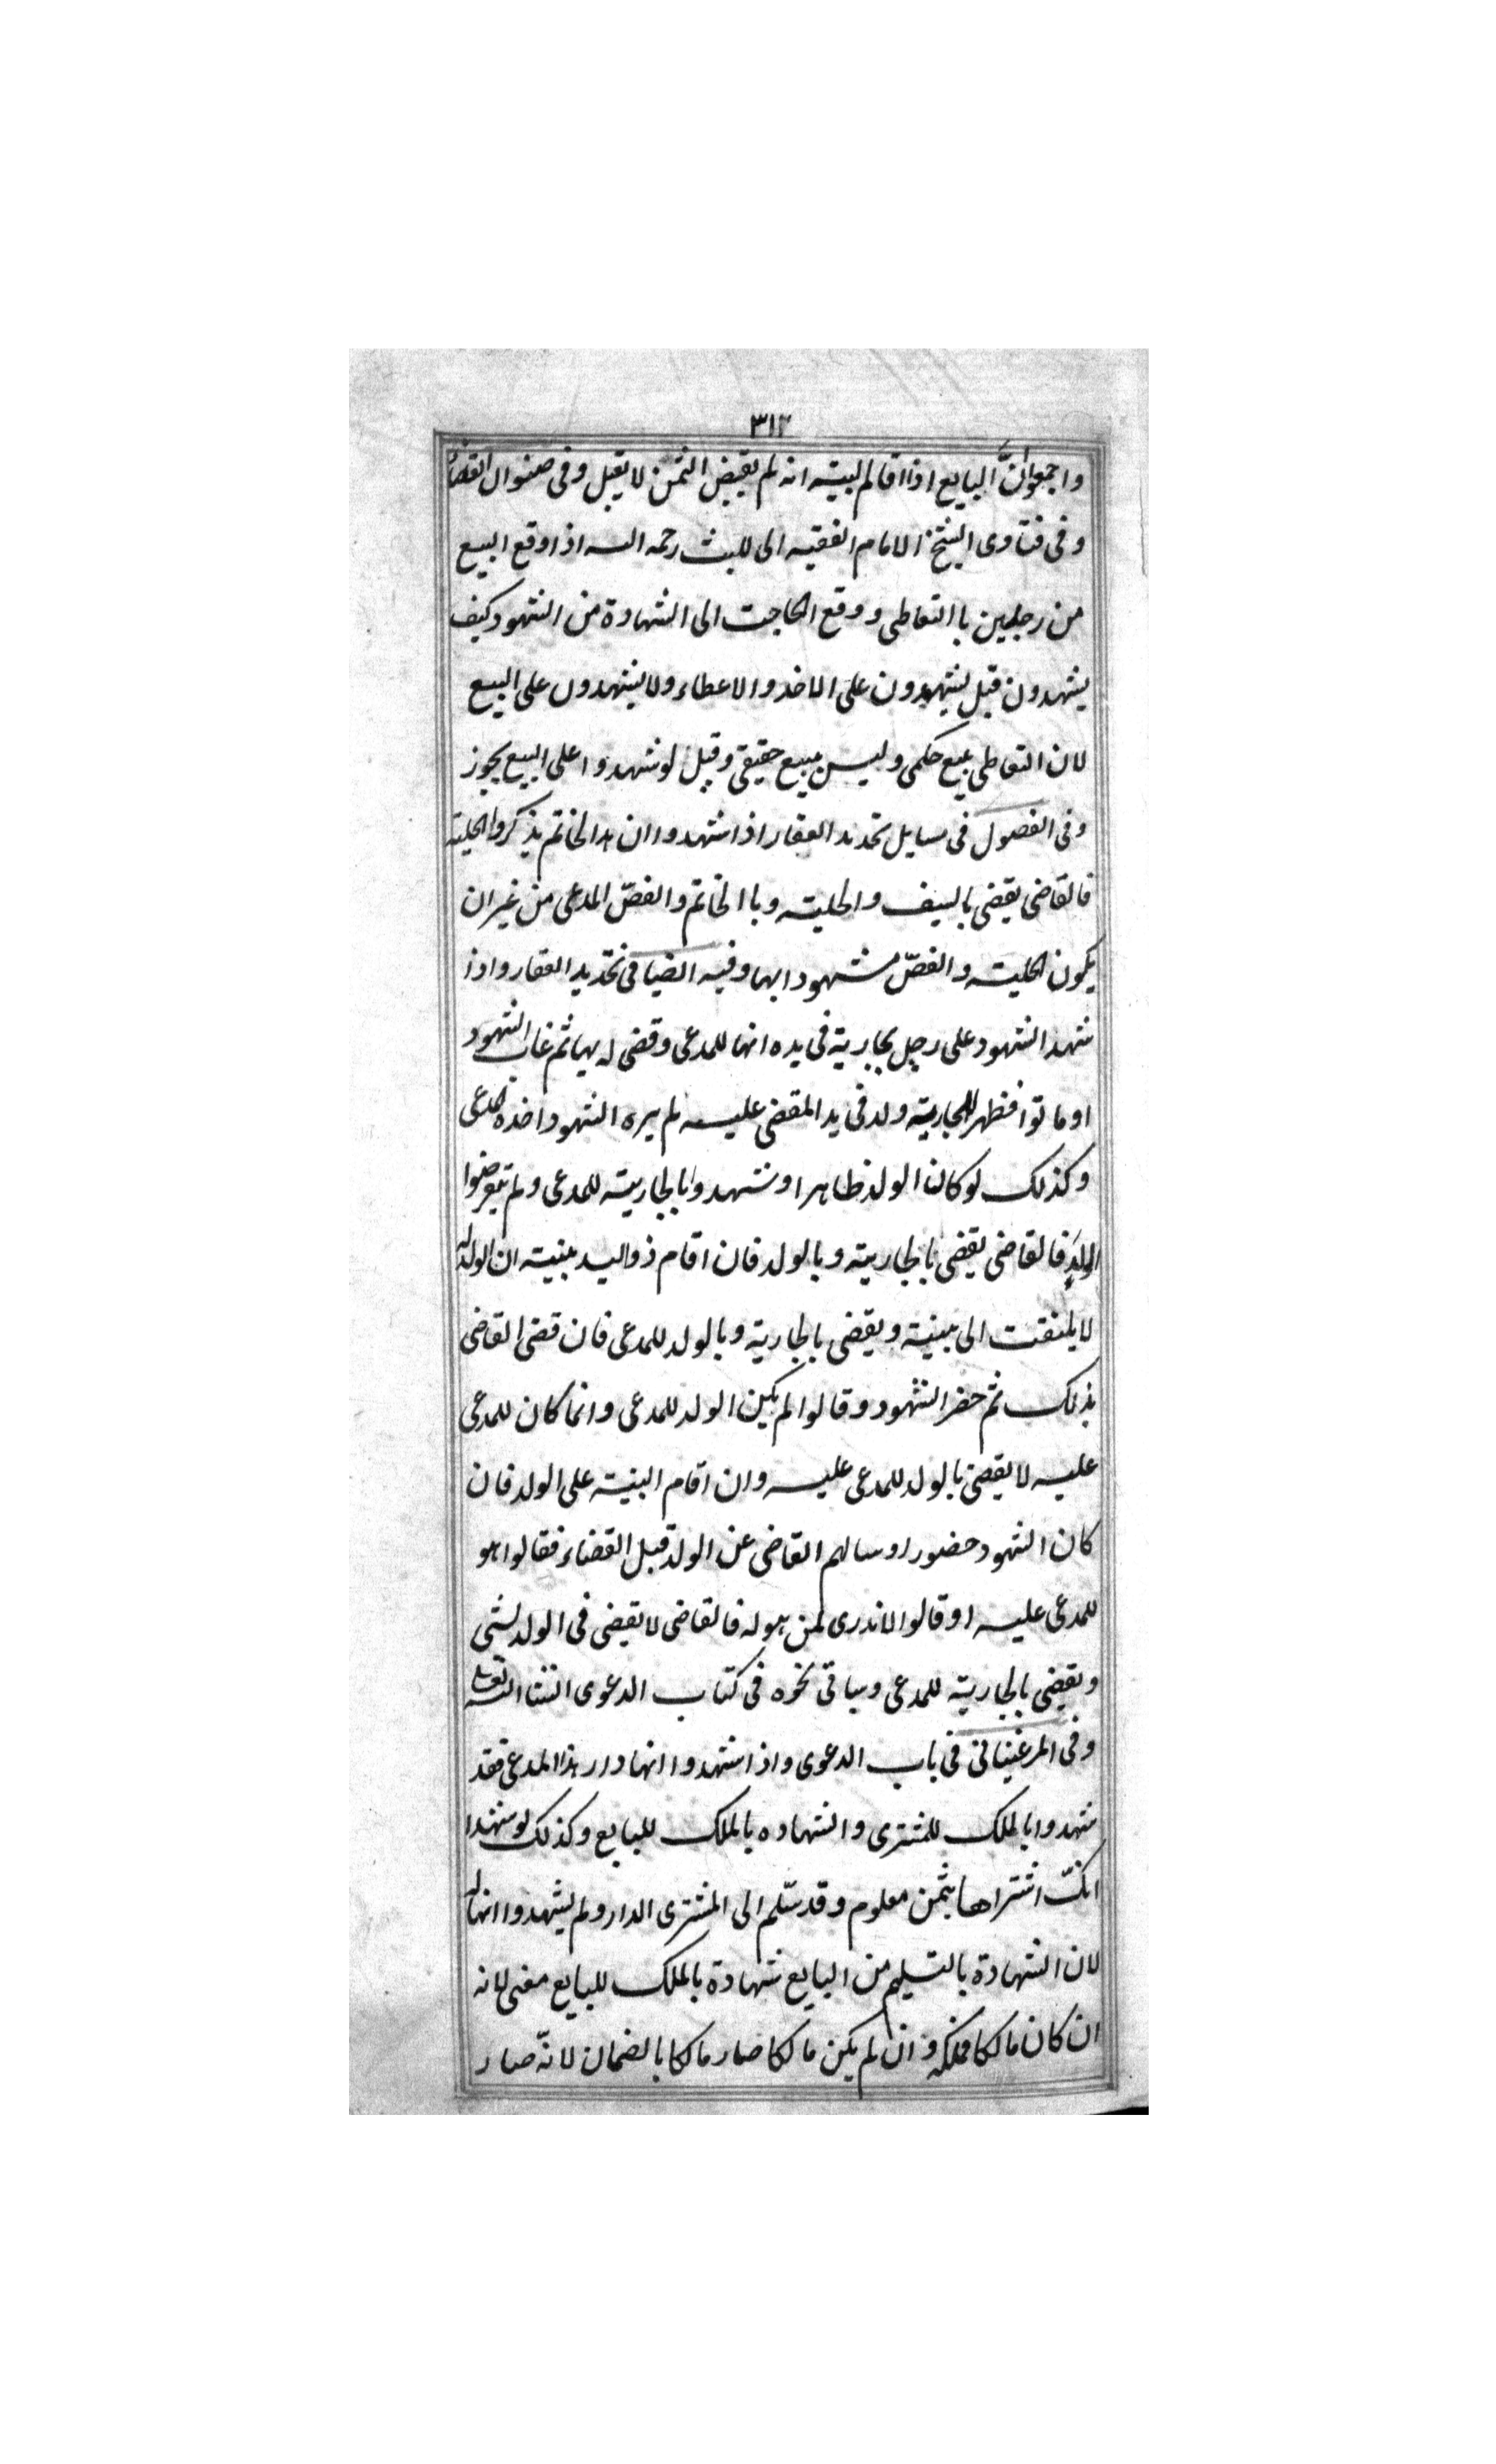 ٣١٢
واجمعوا انّ البايع اذا اقام البينة انه لم يقبض الثمن لا يقبل وفى صنوان القضا
وفى فتاوى الشيخ الامام الفقيه ابى الليث رحمه الله اذا وقع البيع
من رجلين باالتعاطى ووقع الحاجت الى الشهادة من الشهود كيف
يشهدون قيل يشهدون على الاخذ والاعطاء ولا يشهدون على البيع
لان التعاطى بيع حكمى وليس ببيع حقيقى وقيل لو شهدوا على البيع يجوز
وفى الفصول فى مسايل تحديد العقار اذا شهدوا ان هذا لخاتم يذكروا الحلية
فالقاضى يقضى بالسيف والحلية وباالخاتم والفصّ المدعى من غير ان
يكون الحلية والفصّ مشهودا بهما وفيه ايضا فى تحديد العقار واذا
شهد الشهود على رجل بجارية فى يده انها للمدعى وقضى له بها ثم غاب الشهود
او ماتوا فظهر للجارية ولد فى يد المقضى عليه لم يره الشهود اخذه المدعى
وكذلك لو كان الولد ظاهرا وشهدوا بالجارية للمدعى ولم يتعرضوا
الولد فالقاضى يقضى بالجارية وبالولد فان اقام ذواليد بينة ان الولد له
لا يلتفت الى بينة ويقضى بالجارية وبالولد للمدعى فان قضى القاضى
بذلك ثم حضر الشهود وقالوا لم يكن الولد للمدعى وانما كان للمدعى
عليه لا يقضى بالولد للمدعى عليه وان اقام البينة على الولد فان
كان الشهود حضورا وسالهم القاضى عن الولد قبل القضاء فقالوا هو
للمدعى عليه او قالوا لاندرى لمن هو له فالقاضى لا يقضى فى الولد بشى
ويقضى بالجارية للمدعى وسياتى نحوه فى كتاب الدعوى انشا الله تعالى
وفى المرغينانى فى باب الدعوى واذا شهدوا انها دار هذا المدعى فقد
شهدوا بالملك للمشترى والشهاده بالملك للبايع وكذلك لو شهدا
انكّ اشتراها بثمن معلوم وقد سّلم الى المشترى الدار ولم يشهدوا انها له
لان الشهادة بالتسليم من البايع شهادة بالملك للبايع معنى لانه
ان كان مالكا فملكه وان لم يكن مالكا صار مالكا بالضمان لانّه صار